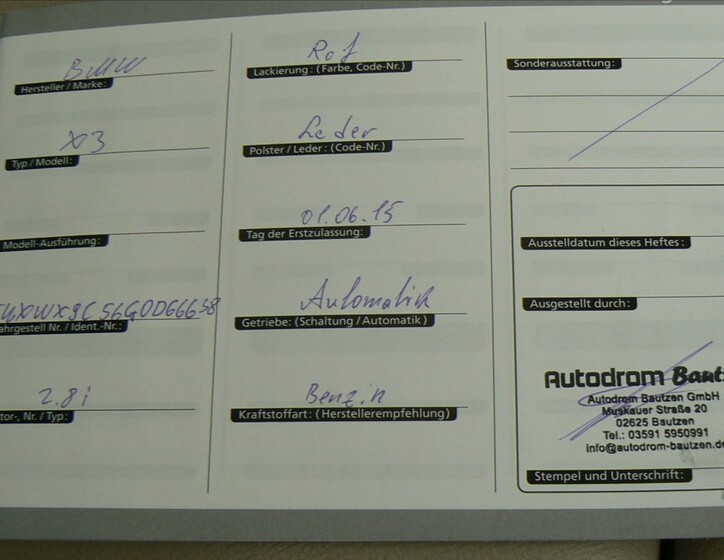 BMW
Hersteller / Marke:
X3
Typ / Modell:
Modell-Ausführung:
ahrgestell Nr. / Ident.-Nr.:
2.8i
tor-, Nr. / Typ:
Rot
Lackierung: (Farbe, Code-Nr.)
Leder
Polster / Leder: (Code-Nr.)
01.06.15
Tag der Erstzulassung:
Automatik
Getriebe: (Schaltung / Automatik)
Benzin
Kraftstoffart: (Herstellerempfehlung)
Sonderausstattung:
Ausstelldatum dieses Heftes:
Ausgestellt durch:
Autodrom Baut
Autodrom Bautzen GmbH
Muskauer Straße 20
02625 Bautzen
Tel.: 03591 5950991
info@autodrom-bautzen.de
Stempel und Unterschrift: